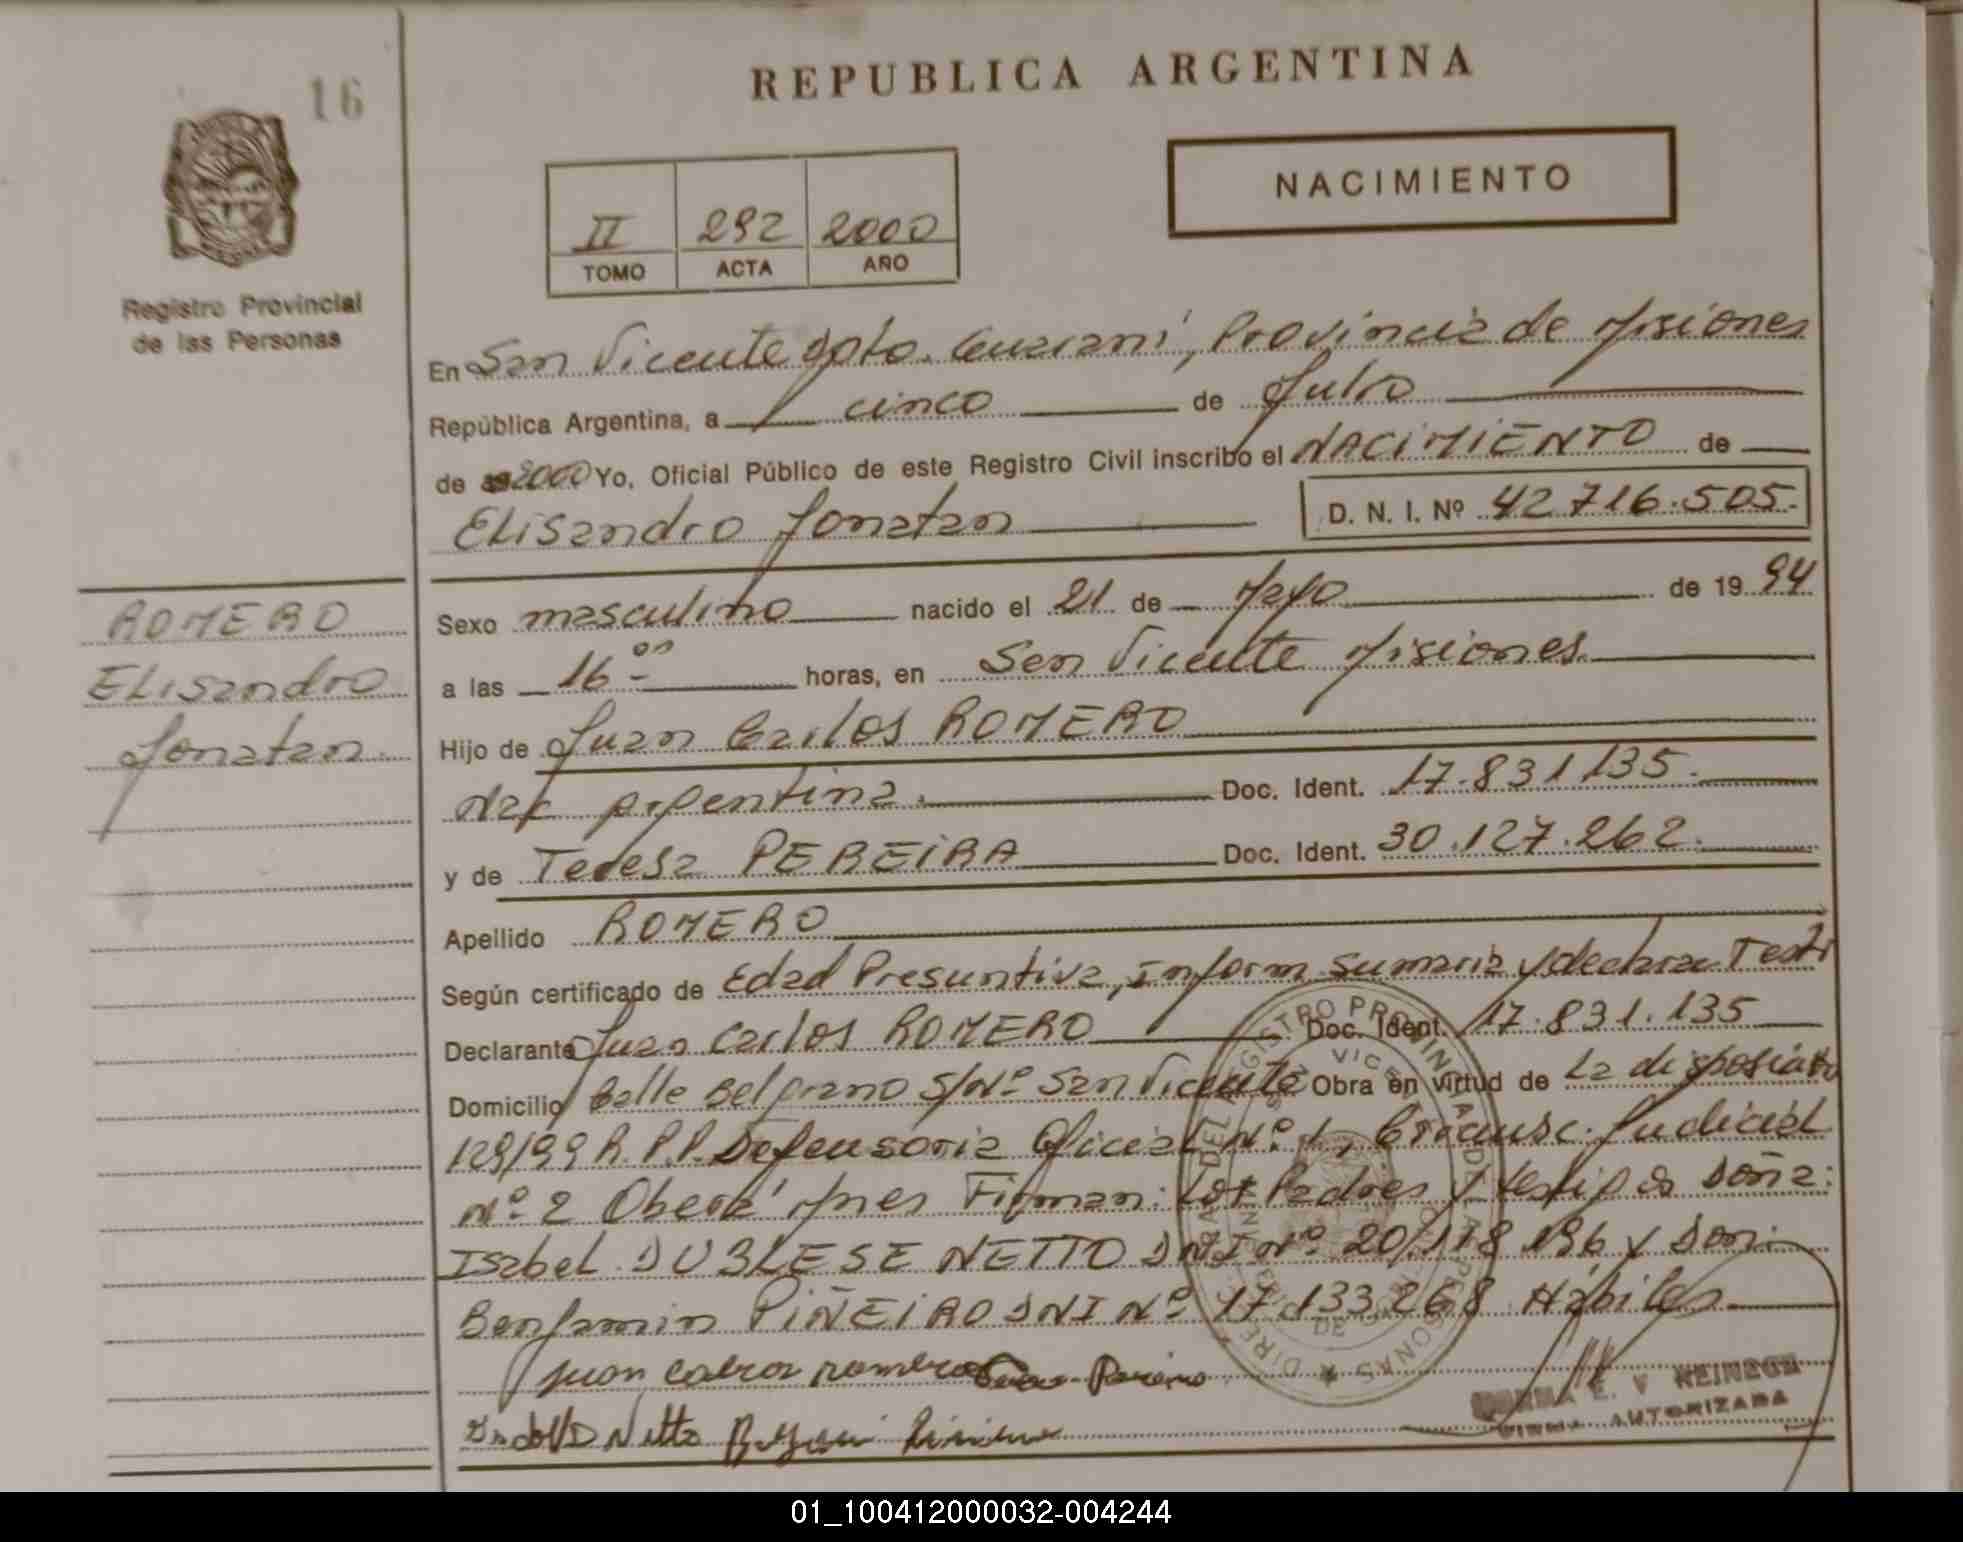 16
REPUBLICA ARGENTINA
NACIMIENTO
II 292 2000
TOMO ACTA AÑO
Registro Provincial
de las Personas
En San Vicente Dpto. Guaraní, Provincia de Misiones
República Argentina, a cinco de Julio
de 2000 Yo, Oficial Público de este Registro Civil inscribo el NACIMIENTO de
Elisandro Jonatan D. N. I. Nº 42.716.505.-
ROMERO
Elisandro
Jonatan.
Sexo masculino nacido el 21 de Mayo de 19 94
a las 16 00 horas, en San Vicente Misiones.
Hijo de Juan Carlos ROMERO
Nac Argentina. Doc. Ident. 17.831.135.
y de Teresa PEREIRA Doc. Ident. 30.127.262.
Apellido ROMERO
Según certificado de Edad Presuntiva, Inform Sumaria y declarac Testi
Declarante Juan Carlos ROMERO Doc. Ident. 17.831.135
Domicilio Calle Belgrano S/Nº San Vicente Obra en virtud de La disposición
129/99 R.P.P. Defensoria Oficial Nº 1, Circunsc. Judicial
Nº 2 Oberá Mnes Firman: Los Padres y testigos Doña:
Isabel DUBLESE NETTO DNI Nº 20.118.196 y Don:
Benjamin PIÑEIRO DNI Nº 17.133.268 Hábiles
DIRE DEL REGISTRO PROVINCIAL DE LAS PERSONAS
E. V REINECK
FIRMA AUTORIZADA
01_100412000032-004244